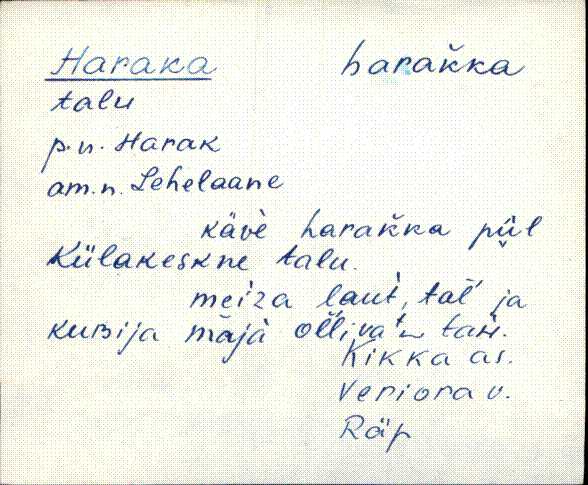 Haraka harak̆ka
talu
p.n. Harak
am.n. Lehelaane
kävè harak̆ka pääl
Külakeskne talu.
meiza laut, tal' ja
kubija maja olliva' tah.
Kikka as.
Veriora v.
Räp